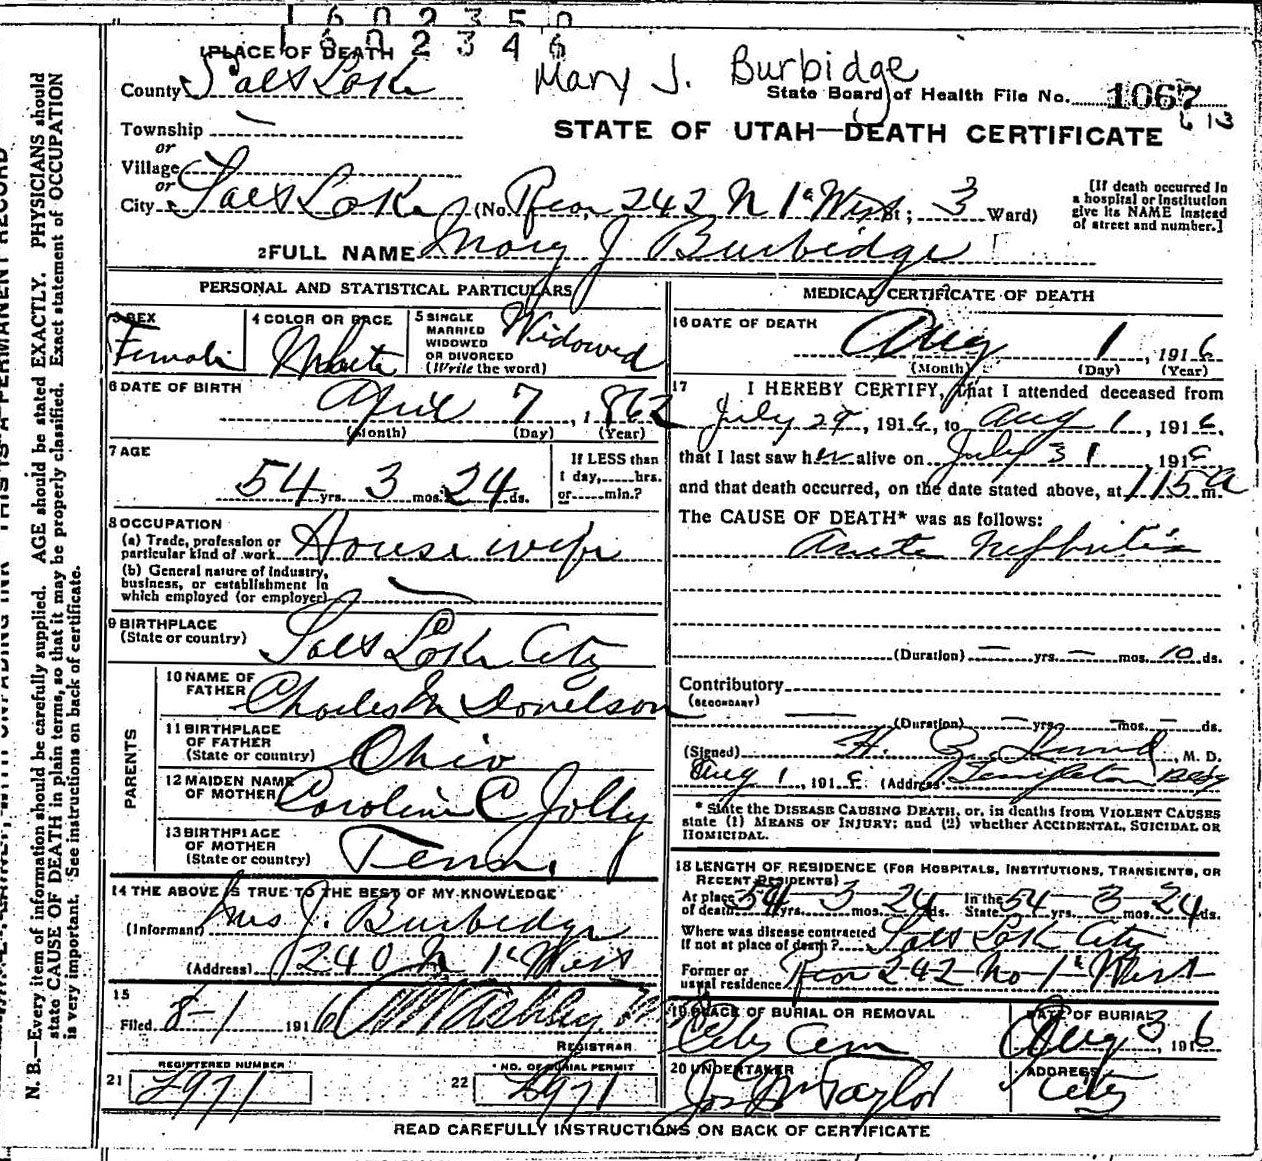 1602350
1602346
1 PLACE OF DEATH
Mary J. Burbidge
County Salt Lake
State Board of Health File No. 1067
613
Township —
or
Village
or
STATE OF UTAH—DEATH CERTIFICATE
City Salt Lake (No. Rear 242 N 1st West St; 3 Ward)
[If death occurred in
a hospital or institution
give its NAME instead
of street and number.]
2 FULL NAME Mary J Burbidge
PERSONAL AND STATISTICAL PARTICULARS
3 SEX
Female
4 COLOR OR RACE
White
5 SINGLE
MARRIED
WIDOWED
OR DIVORCED
(Write the word)
Widowed
6 DATE OF BIRTH
April 7, 1862
(Month) (Day) (Year)
7 AGE
54 yrs. 3 mos. 24 ds.
If LESS than
1 day,......hrs.
or......min.?
8 OCCUPATION
(a) Trade, profession or
particular kind of work Housewife
(b) General nature of industry,
business, or establishment in
which employed (or employer) —
9 BIRTHPLACE
(State or country) Salt Lake City
PARENTS
10 NAME OF
FATHER Charles M Donelson
11 BIRTHPLACE
OF FATHER
(State or country) Ohio
12 MAIDEN NAME
OF MOTHER Caroline C Jolly
13 BIRTHPLACE
OF MOTHER
(State or country) Tenn.
14 THE ABOVE IS TRUE TO THE BEST OF MY KNOWLEDGE
(Informant) Mrs J. Burbidge
(Address) 240 N 1st West
15
Filed 8-1 1916
REGISTRAR
REGISTERED NUMBER
21 2971
NO. OF BURIAL PERMIT
22 2971
MEDICAL CERTIFICATE OF DEATH
16 DATE OF DEATH
Aug 1, 1916
(Month) (Day) (Year)
17 I HEREBY CERTIFY, that I attended deceased from
July 29, 1916, to Aug 1, 1916,
that I last saw her alive on July 31, 1916
and that death occurred, on the date stated above, at 115 a m.
The CAUSE OF DEATH* was as follows:
Acute Nephritis
(Duration) — yrs. — mos. 10 ds.
Contributory
(SECONDARY)
(Duration) — yrs. — mos. — ds.
(Signed) H. Z. Lund, M. D.
Aug 1, 1916 (Address) Templeton Bldg
* State the DISEASE CAUSING DEATH, or, in deaths from VIOLENT CAUSES
state (1) MEANS OF INJURY; and (2) whether ACCIDENTAL, SUICIDAL OR
HOMICIDAL.
18 LENGTH OF RESIDENCE (FOR HOSPITALS, INSTITUTIONS, TRANSIENTS, OR
RECENT RESIDENTS)
At place
of death 54 yrs. 3 mos. 24 ds. In the
State 54 yrs. 3 mos. 24 ds.
Where was disease contracted
if not at place of death? Salt Lake City
Former or
usual residence Rear 242 No 1st West
19 PLACE OF BURIAL OR REMOVAL
City Cem
DATE OF BURIAL
Aug 3, 1916
20 UNDERTAKER
Jos Wm Taylor
ADDRESS
City
READ CAREFULLY INSTRUCTIONS ON BACK OF CERTIFICATE
N. B.—Every item of information should be carefully supplied. AGE should be stated EXACTLY. PHYSICIANS should
state CAUSE OF DEATH in plain terms, so that it may be properly classified. Exact statement of OCCUPATION
is very important. See instructions on back of certificate.